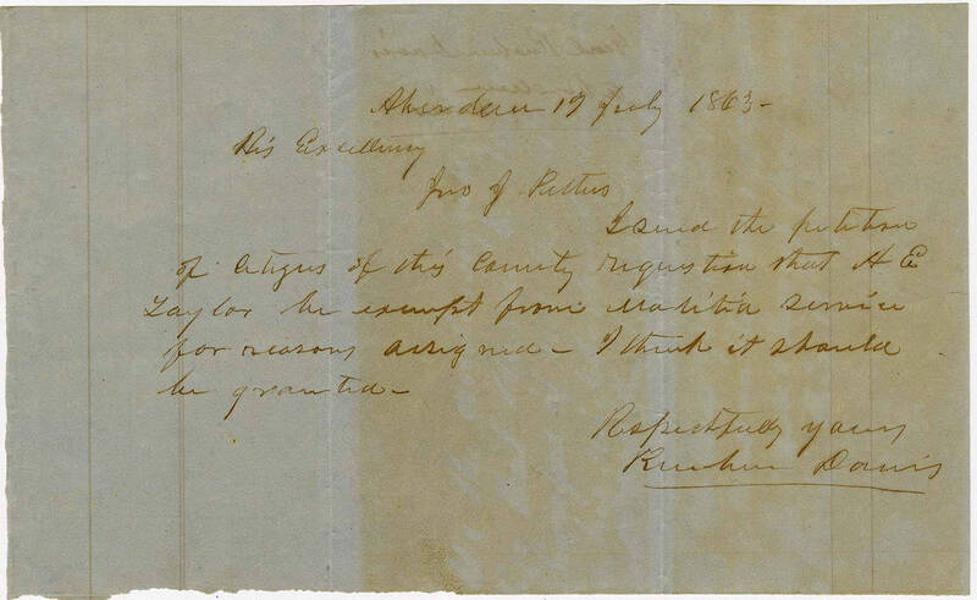 Aberdeen 19 July 1863-
His Excellency
Jno J Pettus
I send the petition
of Citizens of this County requestion that H E
Taylor be exempt from malitia service
for reasons assigned - I think it should
be granted -
Respectfully yours
Reuben Davis